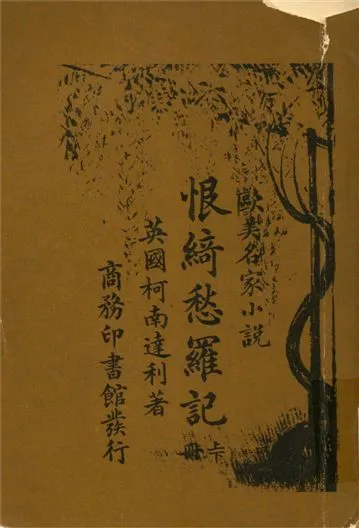 歐美名家小説
恨綺愁羅記
上冊
英國柯南達利著
商務印書館發行